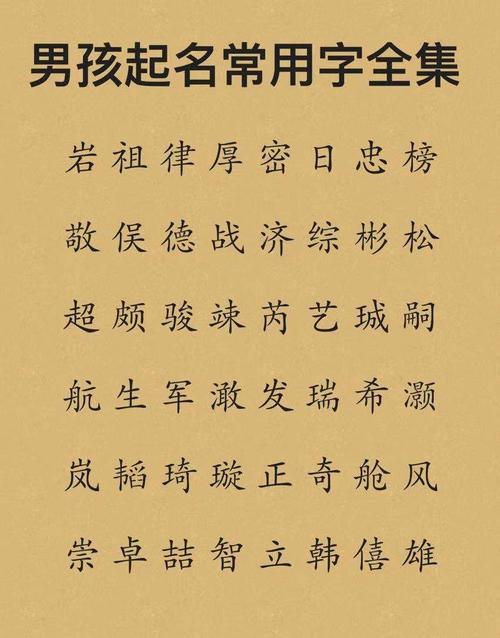 男孩起名常用字全集
岩祖律厚密日忠榜
敬俣德战济综彬松
超颇骏竦芮艺珹嗣
航生军澉发瑞希灏
岚韬琦璇正奇舱风
崇卓喆智立韩僖雄